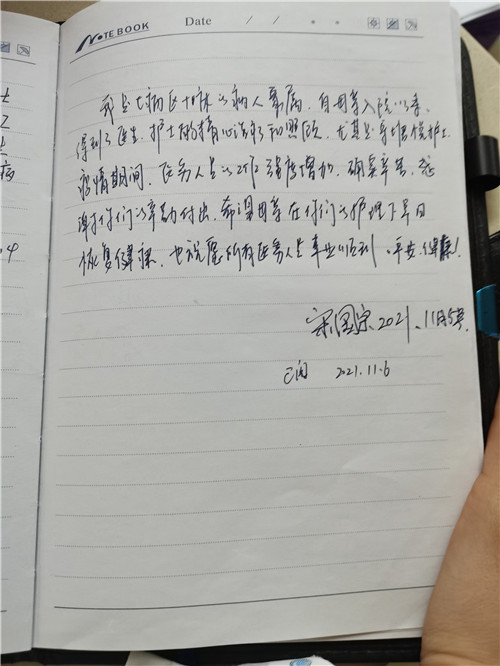 NOTE BOOK Date / /
我是七病区十床的病人家属,自母亲入院以来,
得到了医生、护士的精心治疗和照顾,尤其是
疫情期间,医务人员的工作强度增加,确实辛苦,感
谢你们的辛勤付出,希望母亲在你们的护理下早日
恢复健康,也祝愿所有医务人员事业顺利、平安、健康!
宋国宗 2021.11月5号
已阅 2021.11.6
病